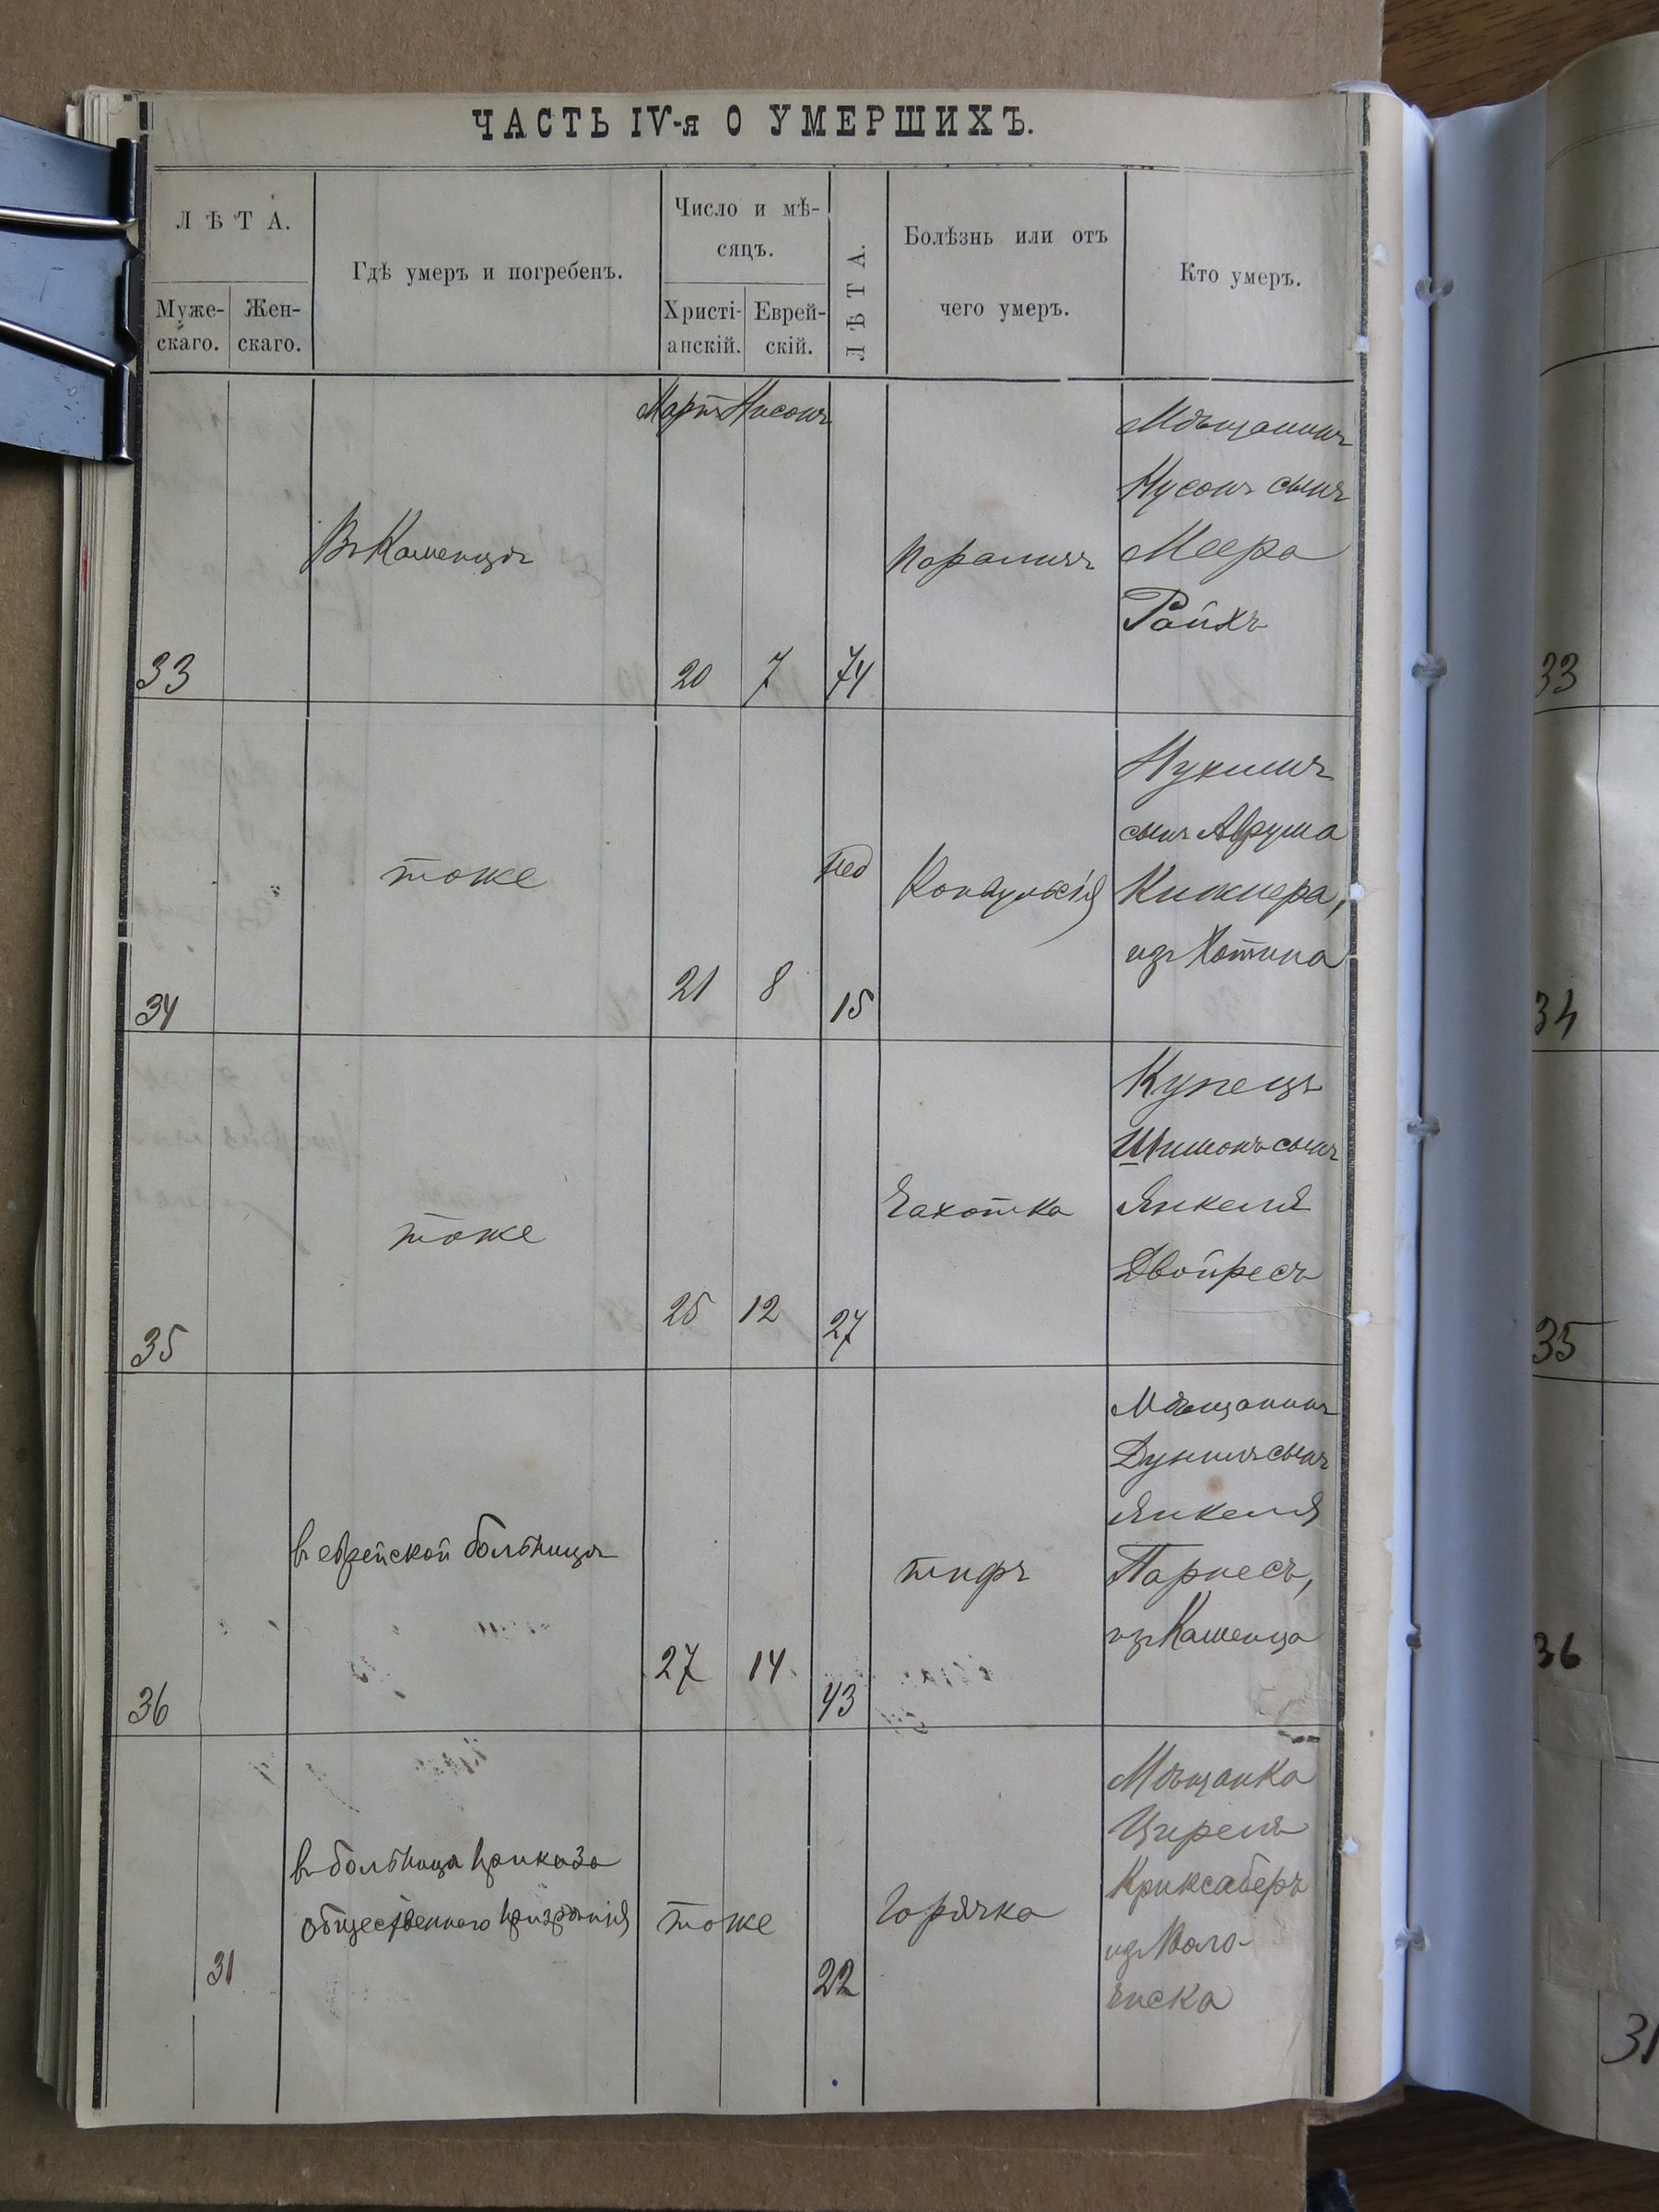 ЧАСТЬ IV-я О УМЕРШИХЪ.
ЛѢТА.
Муже-
скаго.
Жен-
скаго.
Гдѣ умеръ и погребенъ.
Число и мѣ-
сяцъ.
Христі-
анскій.
Еврей-
скій.
ЛѢТА.
Болѣзнь или отъ
чего умеръ.
Кто умеръ.
Мартъ Нисонъ
33
Въ Каменцѣ
20
7
74
Мѣщанинъ
Нусонъ сынъ
Меера
Райхъ
34
тоже
21
8
нед
15
Конвульсія
Нухимъ
сынъ Аврума
Кижнера,
изъ Хотина
35
тоже
25
12
27
Чахотка
Купецъ
Шимонъ сынъ
Янкеля
Двойресъ
36
въ еврейской больницѣ
27
14
43
тифъ
Мѣщанинъ
сынъ
Янкеля
Парнесъ,
изъ Каменца
31
въ больница приказа
общественнаго призрѣнія
тоже
22
Горячка
Мѣщанка
Цирель
Криксаберъ
изъ Воло-
чиска
33
34
35
36
31